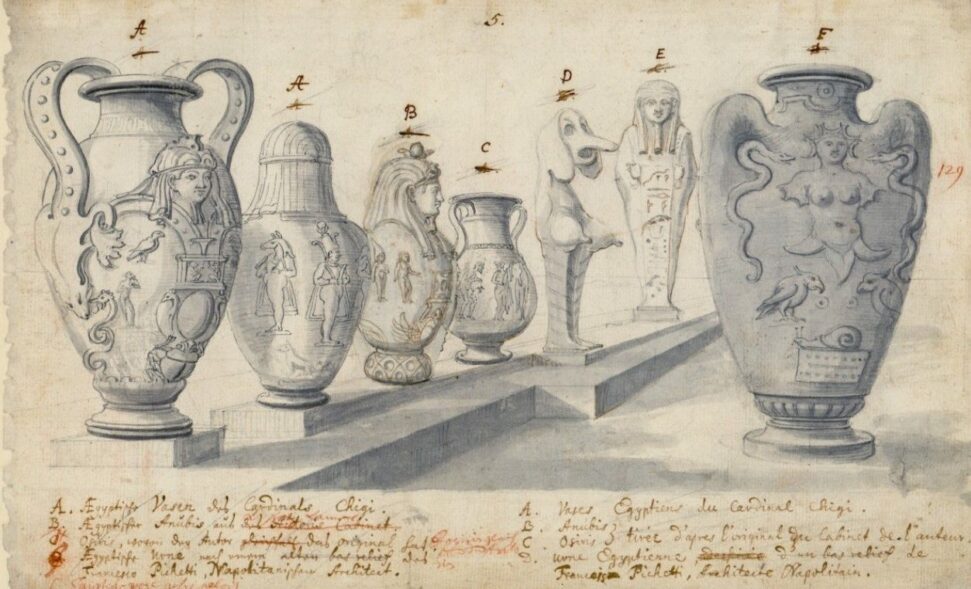 5.
A
A
B
C
D
E
F
129
A. Ægyptische Vasen des Cardinals Chigi.
B. Ægyptischer Anubis aus
Osiris, wovon der Autor das original hat
Ægyptische Urne nach einem alten bas relief des
Francesco Pichetti, Napolitanischen Architect.
A. Vases Egyptiens du Cardinal Chigi.
B. Anubis
C. Osiris tirez d'apres l'original du Cabinet de l'auteur
D. urne Egyptienne d'un bas relief de
Pichetti, Architecte Napolitain.